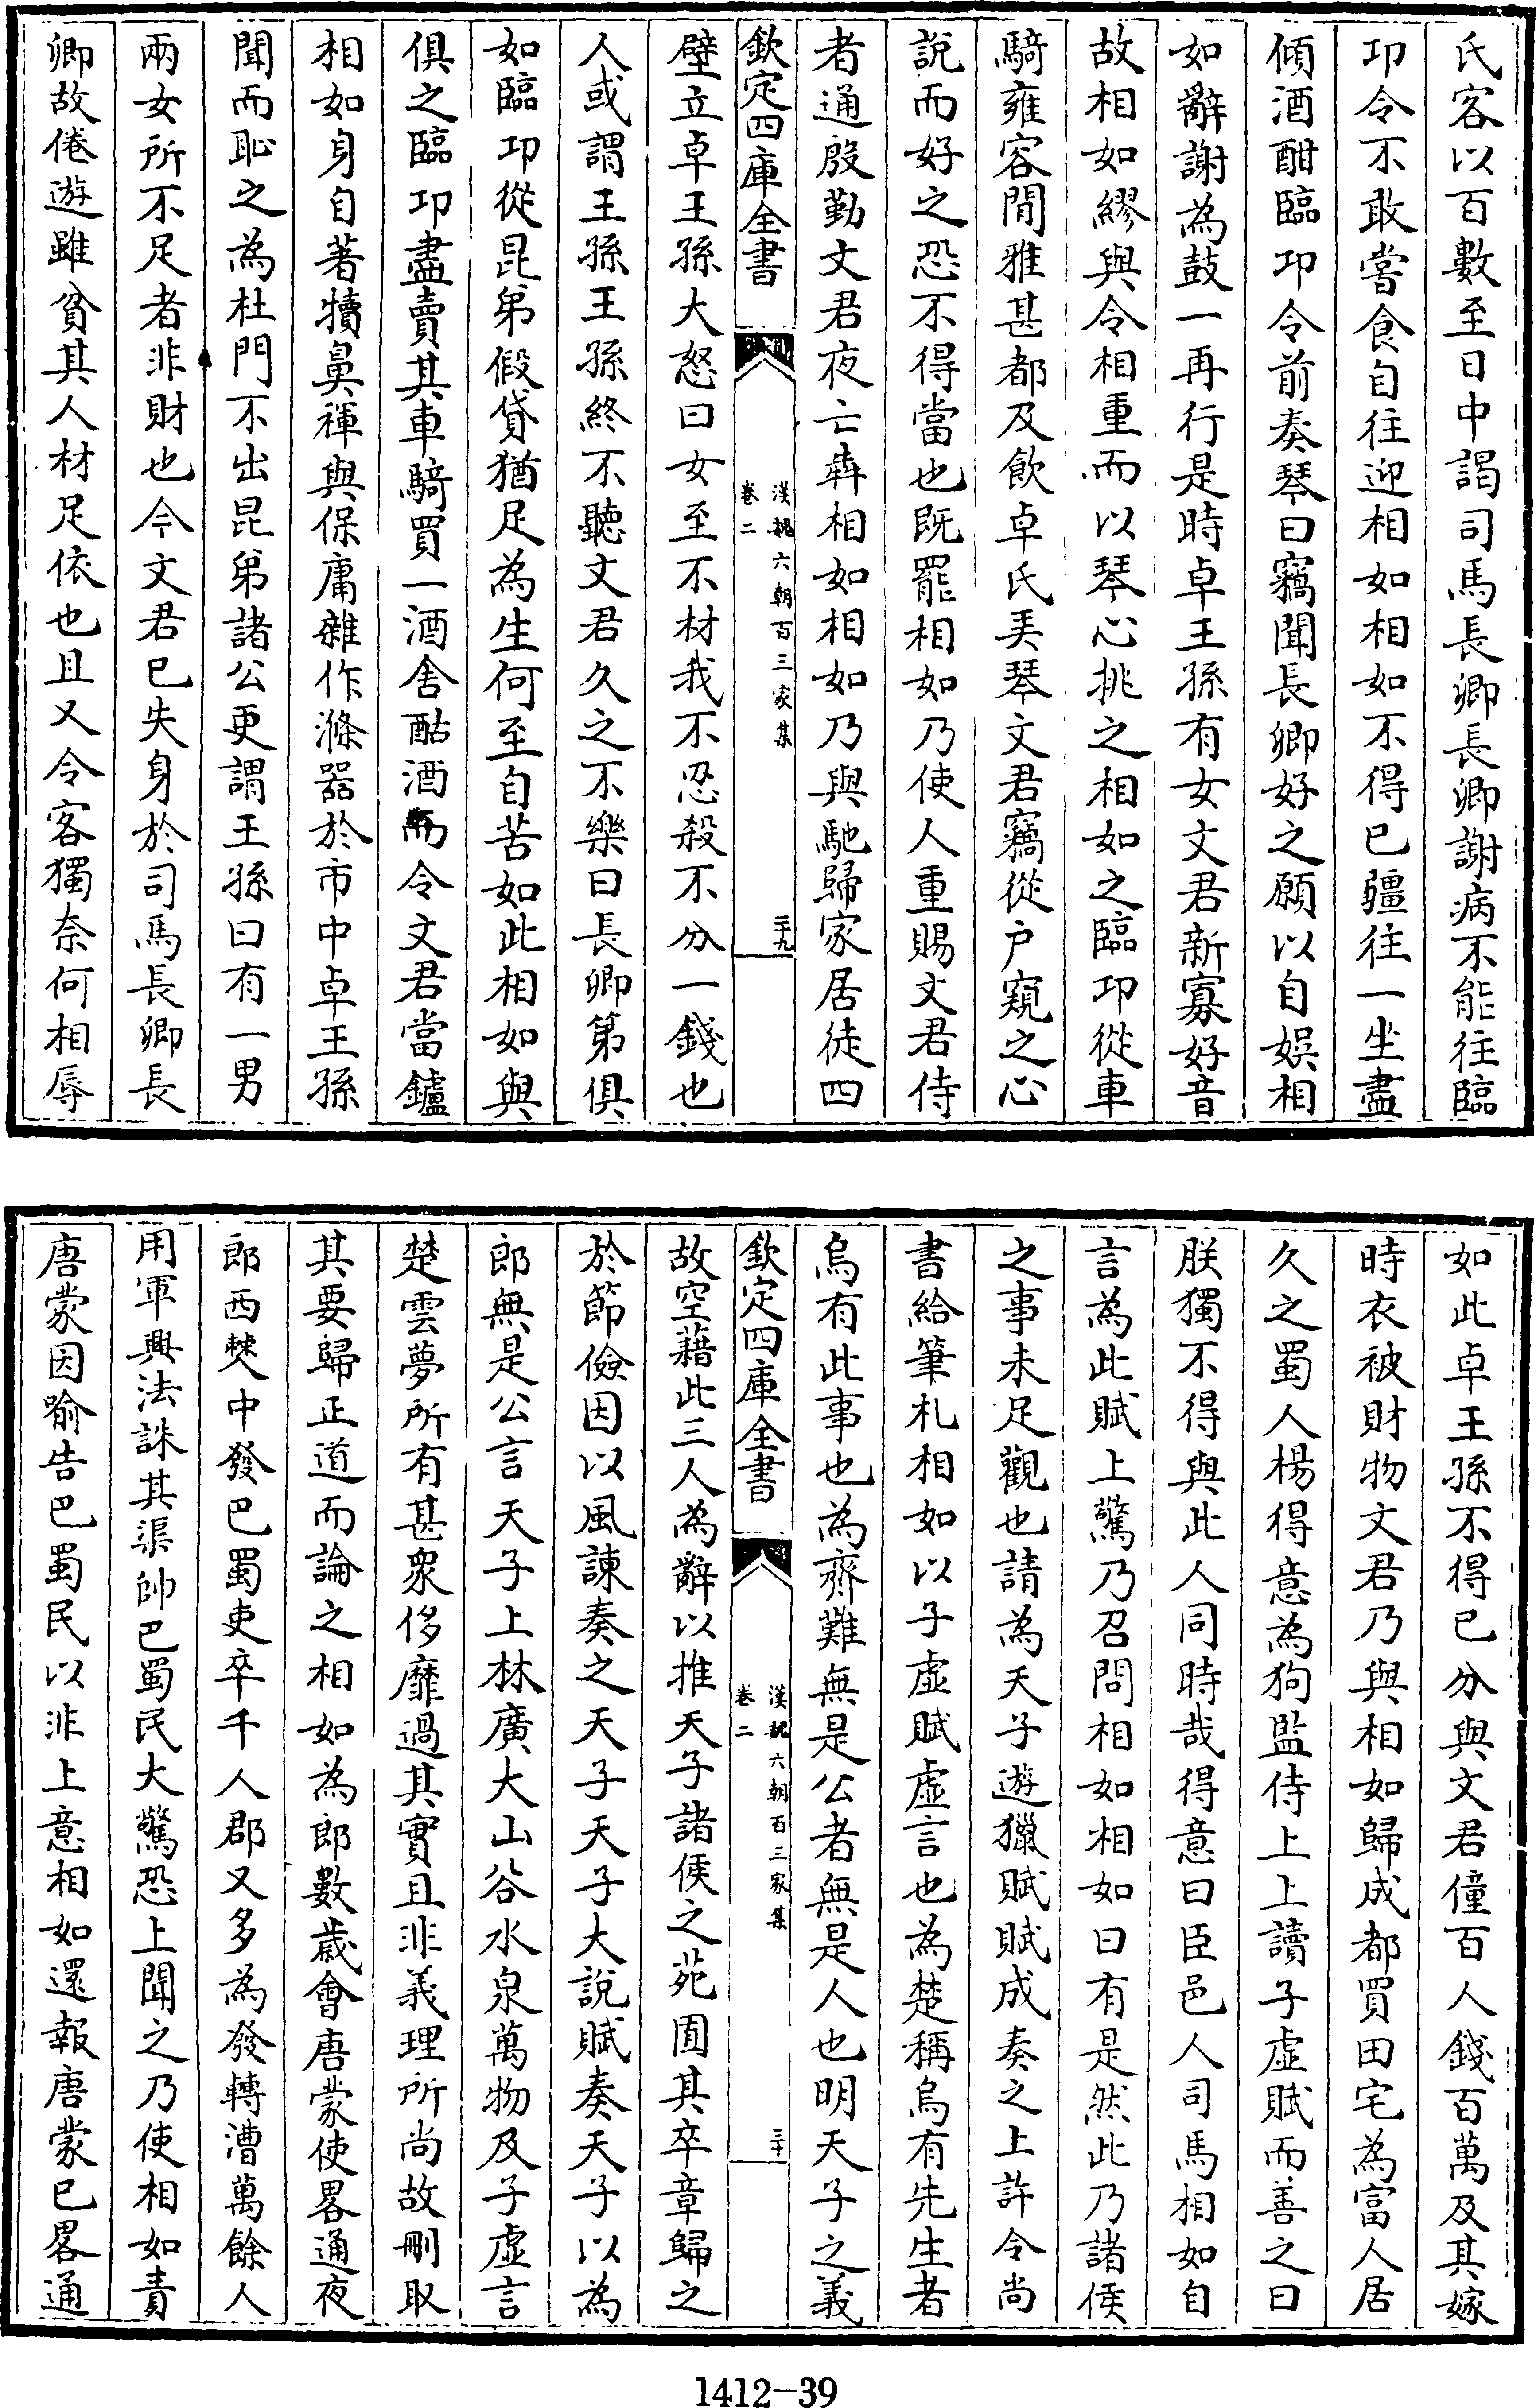 氏客以百數至日中謁司馬長卿長卿謝病不能往臨
卭令不敢嘗食自往迎相如相如不得已彊往一坐盡
傾酒酣臨卭令前奏琴曰竊聞長卿好之願以自娛相
如辭謝為鼓一再行是時卓王孫有女文君新寡好音
故相如繆與令相重而以琴心挑之相如之臨卭從車
騎雍容閒雅甚都及飲卓氏弄琴文君竊從户窺之心
說而好之恐不得當也既罷相如乃使人重賜文君侍
者通殷勤文君夜亡犇相如相如乃與馳歸家居徒四
欽定四庫全書
漢魏六朝百三家集
卷二
二十九
壁立卓王孫大怒曰女至不材我不忍殺不分一錢也
人或謂王孫王孫終不聽文君久之不樂曰長卿第俱
如臨卭從昆弟假貸猶足為生何至自苦如此相如與
俱之臨卭盡賣其車騎買一酒舍酤酒而令文君當鑪
相如身自著犢鼻褌與保庸雜作滌器於市中卓王孫
聞而恥之為杜門不出昆弟諸公更謂王孫曰有一男
兩女所不足者非財也今文君已失身於司馬長卿長
卿故倦遊雖貧其人材足依也且又令客獨奈何相辱
如此卓王孫不得已分與文君僮百人錢百萬及其嫁
時衣被財物文君乃與相如歸成都買田宅為富人居
久之蜀人楊得意為狗監侍上上讀子虛賦而善之曰
朕獨不得與此人同時哉得意曰臣邑人司馬相如自
言為此賦上驚乃召問相如相如曰有是然此乃諸侯
之事未足觀也請為天子遊獵賦賦成奏之上許令尚
書給筆札相如以子虛賦虛言也為楚稱烏有先生者
烏有此事也為齊難無是公者無是人也明天子之義
欽定四庫全書
漢魏六朝百三家集
卷二
三十
故空藉此三人為辭以推天子諸侯之苑囿其卒章歸之
於節儉因以風諫奏之天子天子大說賦奏天子以為
郎無是公言天子上林廣大山谷水泉萬物及子虛言
楚雲夢所有甚衆侈靡過其實且非義理所尚故刪取
其要歸正道而論之相如為郎數歲會唐蒙使畧通夜
郎西僰中發巴蜀吏卒千人郡又多為發轉漕萬餘人
用軍興法誅其渠帥巴蜀民大驚恐上聞之乃使相如責
唐蒙因喻告巴蜀民以非上意相如還報唐蒙已畧通
1412-39